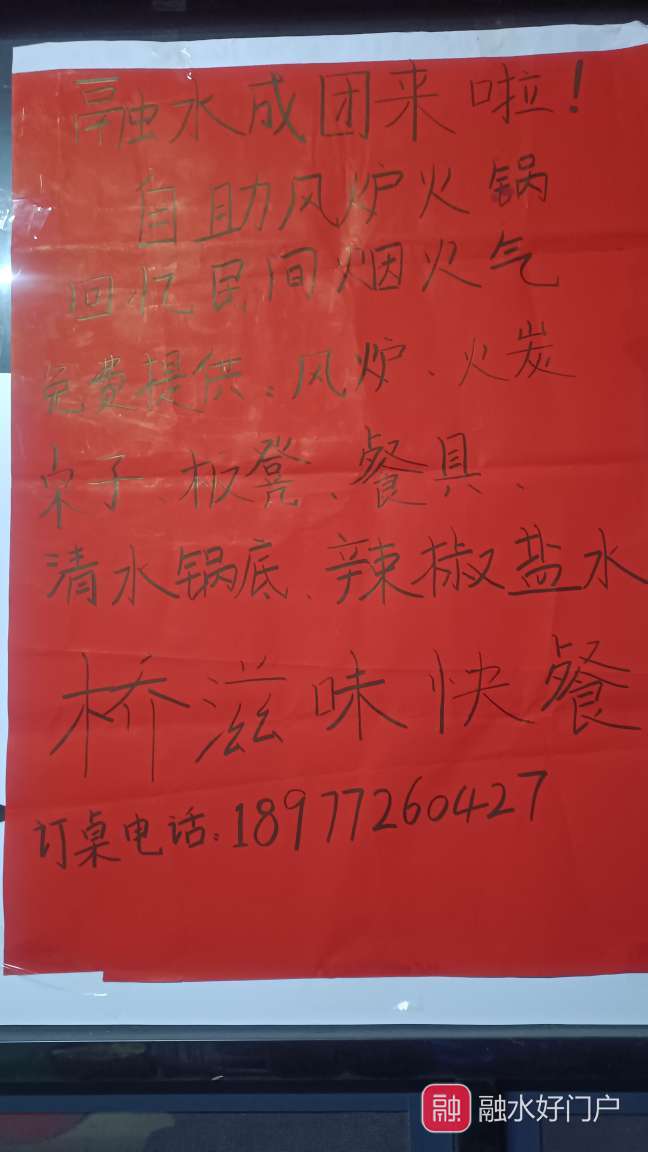 融水成团来啦!
自助风炉火锅
回忆民间烟火气
免费提供:风炉、火炭
桌子、板凳、餐具、
清水锅底、辣椒盐水
桥滋味快餐
订桌电话:18977260427
融 融水好门户